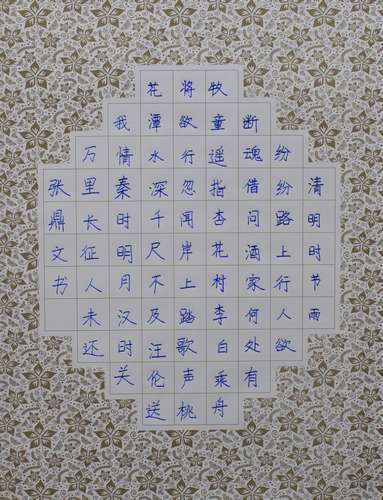 清明时节雨
纷纷路上行人欲
断魂借问酒家何处有
牧童遥指杏花村李白乘舟
将欲行忽闻岸上踏歌声桃
花潭水深千尺不及汪伦送
我情秦时明月汉时关
万里长征人未还
张鼎文书